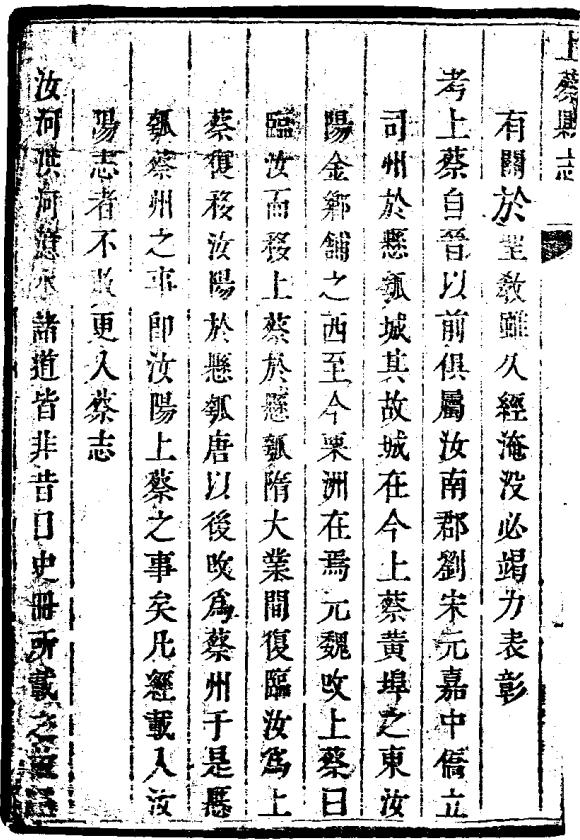 上蔡縣志
有關於聖教雖久經淹没必竭力表彰
考上蔡自晉以前俱屬汝南郡劉宋元嘉中僑立
司州於懸瓠城其故城在今上蔡黃埠之東汝
陽金鄉舖之西至今栗洲在焉元魏攺上蔡曰
臨汝而移上蔡於懸瓠隋大業間復臨汝爲上
蔡復移汝陽於懸瓠唐以後攺爲蔡州于是懸
瓠蔡州之事即汝陽上蔡之事矣凡經載入汝
陽志者不敢更入蔡志
汝河洪河水諸道皆非昔日史冊所載之